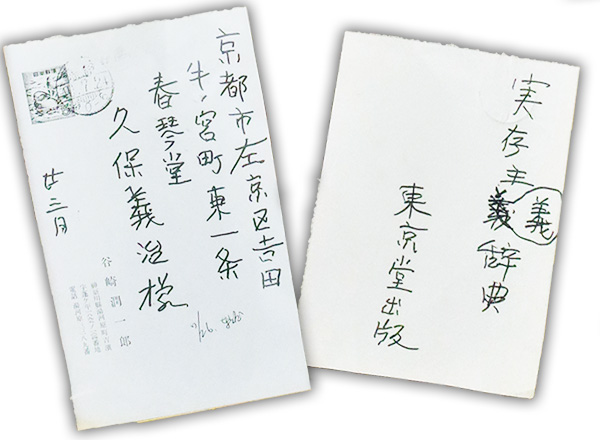 京都市左京区吉田
牛ノ宮町東一条
春琴堂
久保義治様
廿三日
谷崎潤一郎
7/26.
実存主義辞典
義
東京堂出版